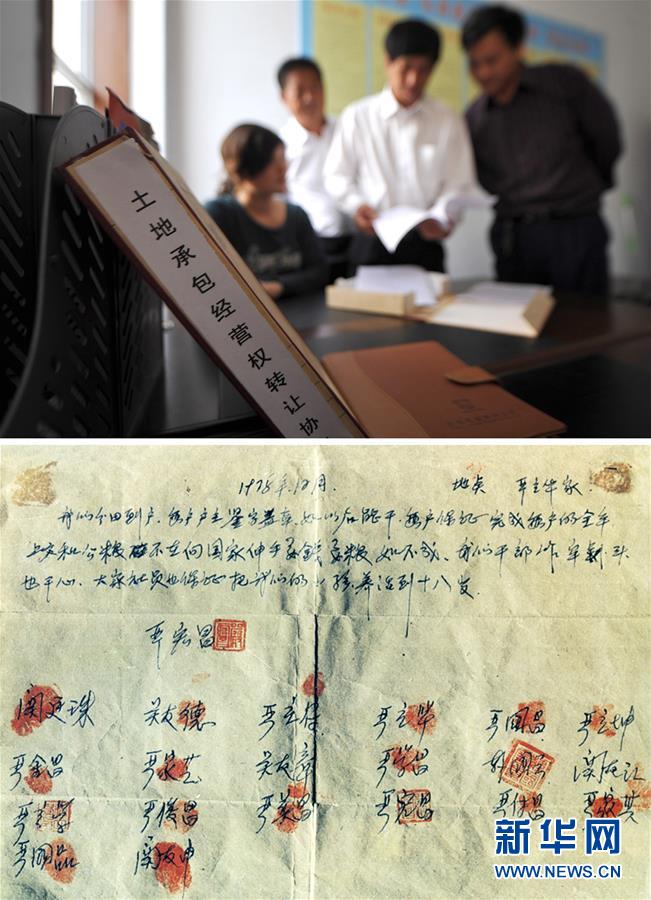 土地承包经营权转让协
1978年12月 地点 严立华家
我们分田到户 每户户主签字盖章 如以后能干 每户保证完成每户的全年
上交和公粮 不在向国家伸手要钱要粮 如不成 我们干部作牢刹头
也干心 大家社员也保证把我们的小孩养活到十八岁
严宏昌
关廷珠 关友德 严立符 严立华 严国昌 严立坤
严金昌 严家芝 关友章 严学昌 韩国云 关友江
严立学 严俊昌 严美昌 严宏昌 严付昌 严家其
严国品 关友申
新华网
WWW.NEWS.CN